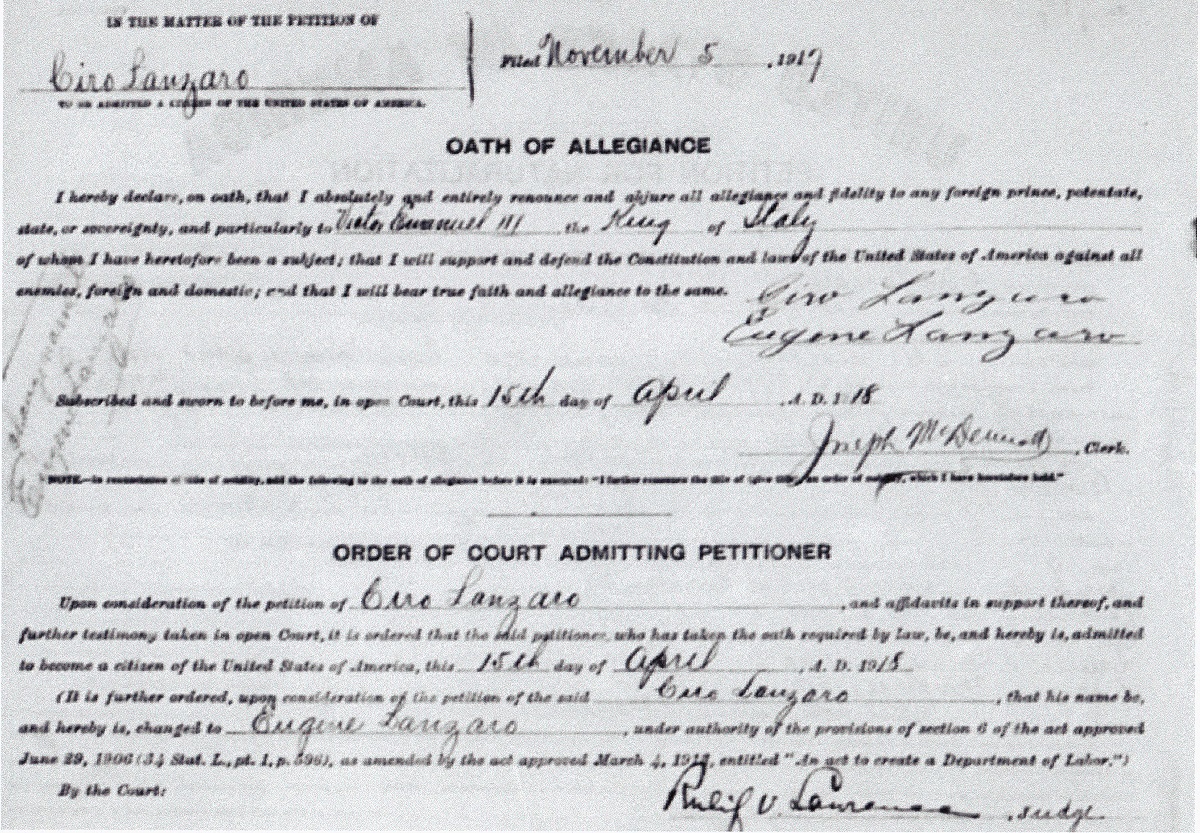 IN THE MATTER OF THE PETITION OF
Ciro Lanzaro
Filed November 5, 1917
TO BE ADMITTED A CITIZEN OF THE UNITED STATES OF AMERICA.
OATH OF ALLEGIANCE
I hereby declare, on oath, that I absolutely and entirely renounce and abjure all allegiance and fidelity to any foreign prince, potentate,
state, or sovereignty, and particularly to Victor Emanuel III the King of Italy
of whom I have heretofore been a subject; that I will support and defend the Constitution and laws of the United States of America against all
enemies, foreign and domestic; and that I will bear true faith and allegiance to the same.
Ciro Lanzaro
Eugene Lanzaro
Eugene Lanzaro
Subscribed and sworn to before me, in open Court, this 15th day of April, A. D. 1918
Joseph McDermott, Clerk.
NOTE.—In renunciation of title of nobility, add the following to the oath of allegiance before it is executed: "I further renounce the title of (give title) an order of nobility, which I have heretofore held."
ORDER OF COURT ADMITTING PETITIONER
Upon consideration of the petition of Ciro Lanzaro, and affidavits in support thereof, and
further testimony taken in open Court, it is ordered that the said petitioner, who has taken the oath required by law, be, and hereby is, admitted
to become a citizen of the United States of America, this 15th day of April, A. D. 1918
(It is further ordered, upon consideration of the petition of the said Ciro Lanzaro, that his name be,
and hereby is, changed to Eugene Lanzaro, under authority of the provisions of section 6 of the act approved
June 29, 1906 (34 Stat. L., pt. 1, p. 596), as amended by the act approved March 4, 1913, entitled "An act to create a Department of Labor.")
By the Court:
Rulif V. Lawrence, Judge.